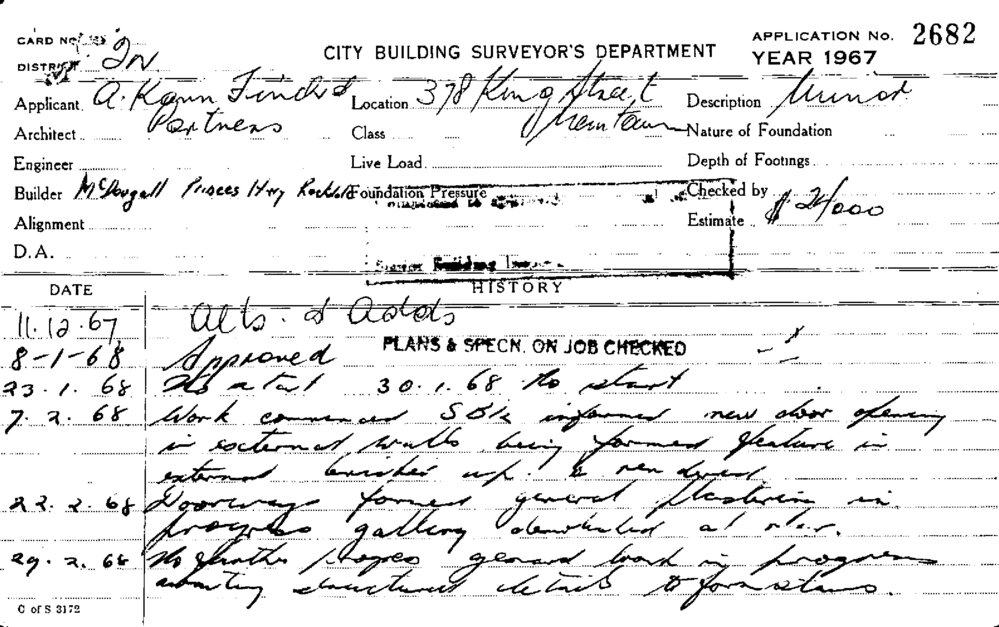 CARD No
CITY BUILDING SURVEYOR'S DEPARTMENT
APPLICATION No. 2682
DISTRICT
YEAR 1967
Applicant A.
Location 378 King Street
Description Minor
Architect Partners
Class
Newtown
Nature of Foundation
Engineer
Live Load
Depth of Footings
Builder McDougall Princes Hwy
Foundation Pressure
Checked by
Alignment
Estimate
D.A.
Building
DATE
HISTORY
11.12.67 Alts. & Adds
8-1-68 Approved PLANS & SPECN. ON JOB CHECKED
23.1.68 No start 30.1.68 No start
7.2.68 Work commenced informed new door opening
in external walls being formed in
external up. & rendered
22.2.68 Doorways formed general plastering in
progress gallery demolished at
29.2.68 No further general work in progress
awaiting structural details
C of S 3172